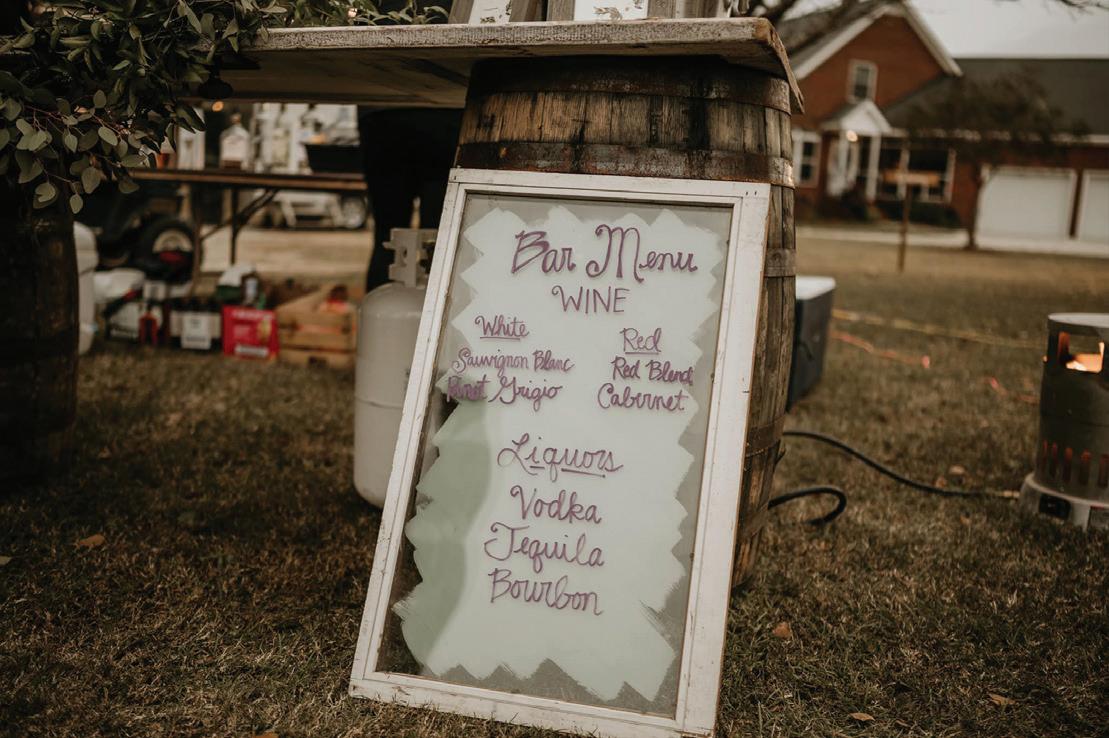 Bar Menu
WINE
White
Sauvignon Blanc
Pinot Grigio
Red
Red Blend
Cabernet
Liquors
Vodka
Tequila
Bourbon